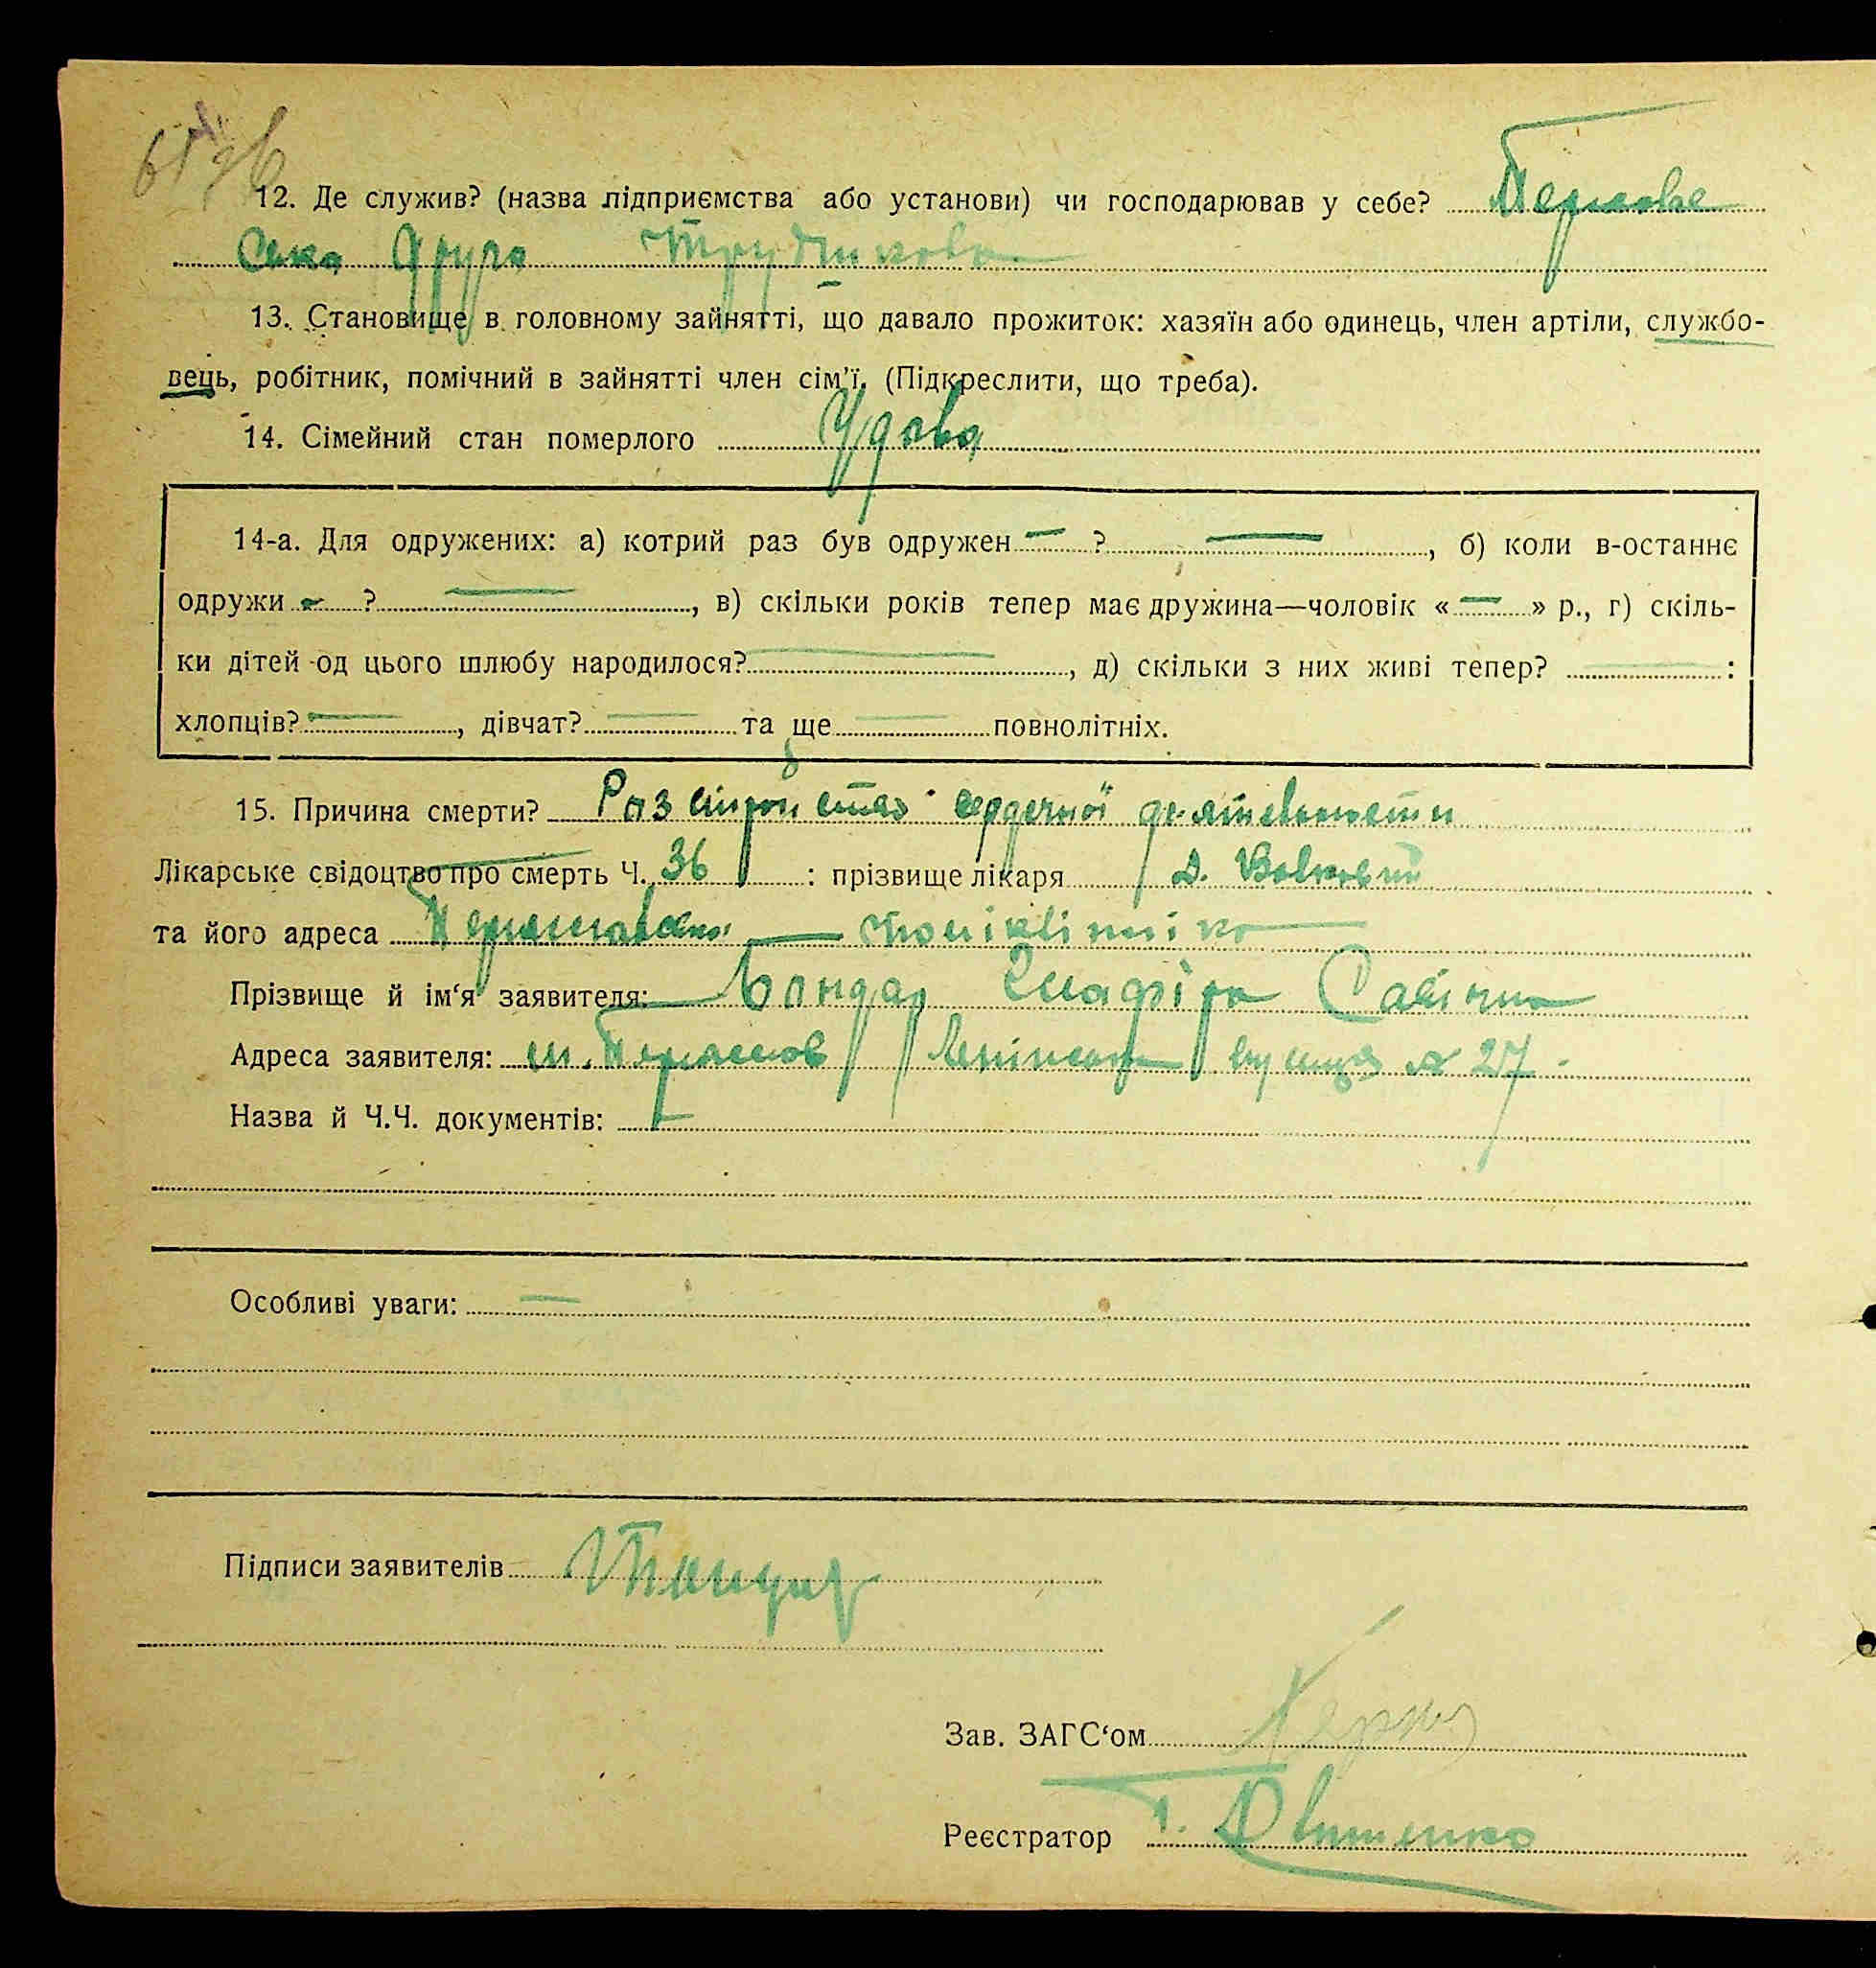 12. Де служив? (назва підприємства або установи) чи господарював у себе?
Друга Трудшкола
13. Становище в головному зайнятті, що давало прожиток: хазяїн або одинець, член артіли, службо-
вець, робітник, помічний в зайнятті член сім'ї. (Підкреслити, що треба).
14. Сімейний стан померлого Удова
14-а. Для одружених: а) котрий раз був одружен — ? —, б) коли в-останнє
одружи — ? —, в) скільки років тепер має дружина—чоловік « — » р., г) скіль-
ки дітей од цього шлюбу народилося? —, д) скільки з них живі тепер? — :
хлопців? —, дівчат? — та ще — повнолітніх.
15. Причина смерти? Разстройство сердечної
Лікарське свідоцтво про смерть Ч. 36 : прізвище лікаря Д.
та його адреса — поліклініка
Прізвище й ім'я заявителя: Бондар Глафіра Савічна
Адреса заявителя: м. Леніньска вулиця № 27
Назва й Ч.Ч. документів:
Особливі уваги: —
Підписи заявителів
Зав. ЗАГС'ом
Реєстратор